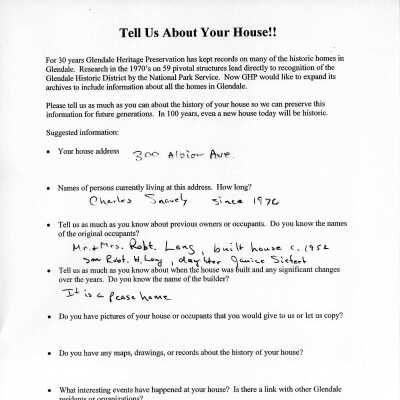 Tell Us About Your House!!
For 30 years Glendale Heritage Preservation has kept records on many of the historic homes in
Glendale. Research in the 1970's on 59 pivotal structures lead directly to recognition of the
Glendale Historic District by the National Park Service. Now GHP would like to expand its
archives to include information about all the homes in Glendale.
Please tell us as much as you can about the history of your house so we can preserve this
information for future generations. In 100 years, even a new house today will be historic.
Suggested information:
• Your house address 300 Albion Ave.
• Names of persons currently living at this address. How long?
Charles Snavely since 1976
• Tell us as much as you know about previous owners or occupants. Do you know the names
of the original occupants?
Mr. + Mrs. Robt. Long, built house c. 1952
son Robt. W. Long, daughter Janice Siefert
• Tell us as much as you know about when the house was built and any significant changes
over the years. Do you know the name of the builder?
It is a Pease home
• Do you have pictures of your house or occupants that you would give to us or let us copy?
• Do you have any maps, drawings, or records about the history of your house?
• What interesting events have happened at your house? Is there a link with other Glendale
residents or organizations?